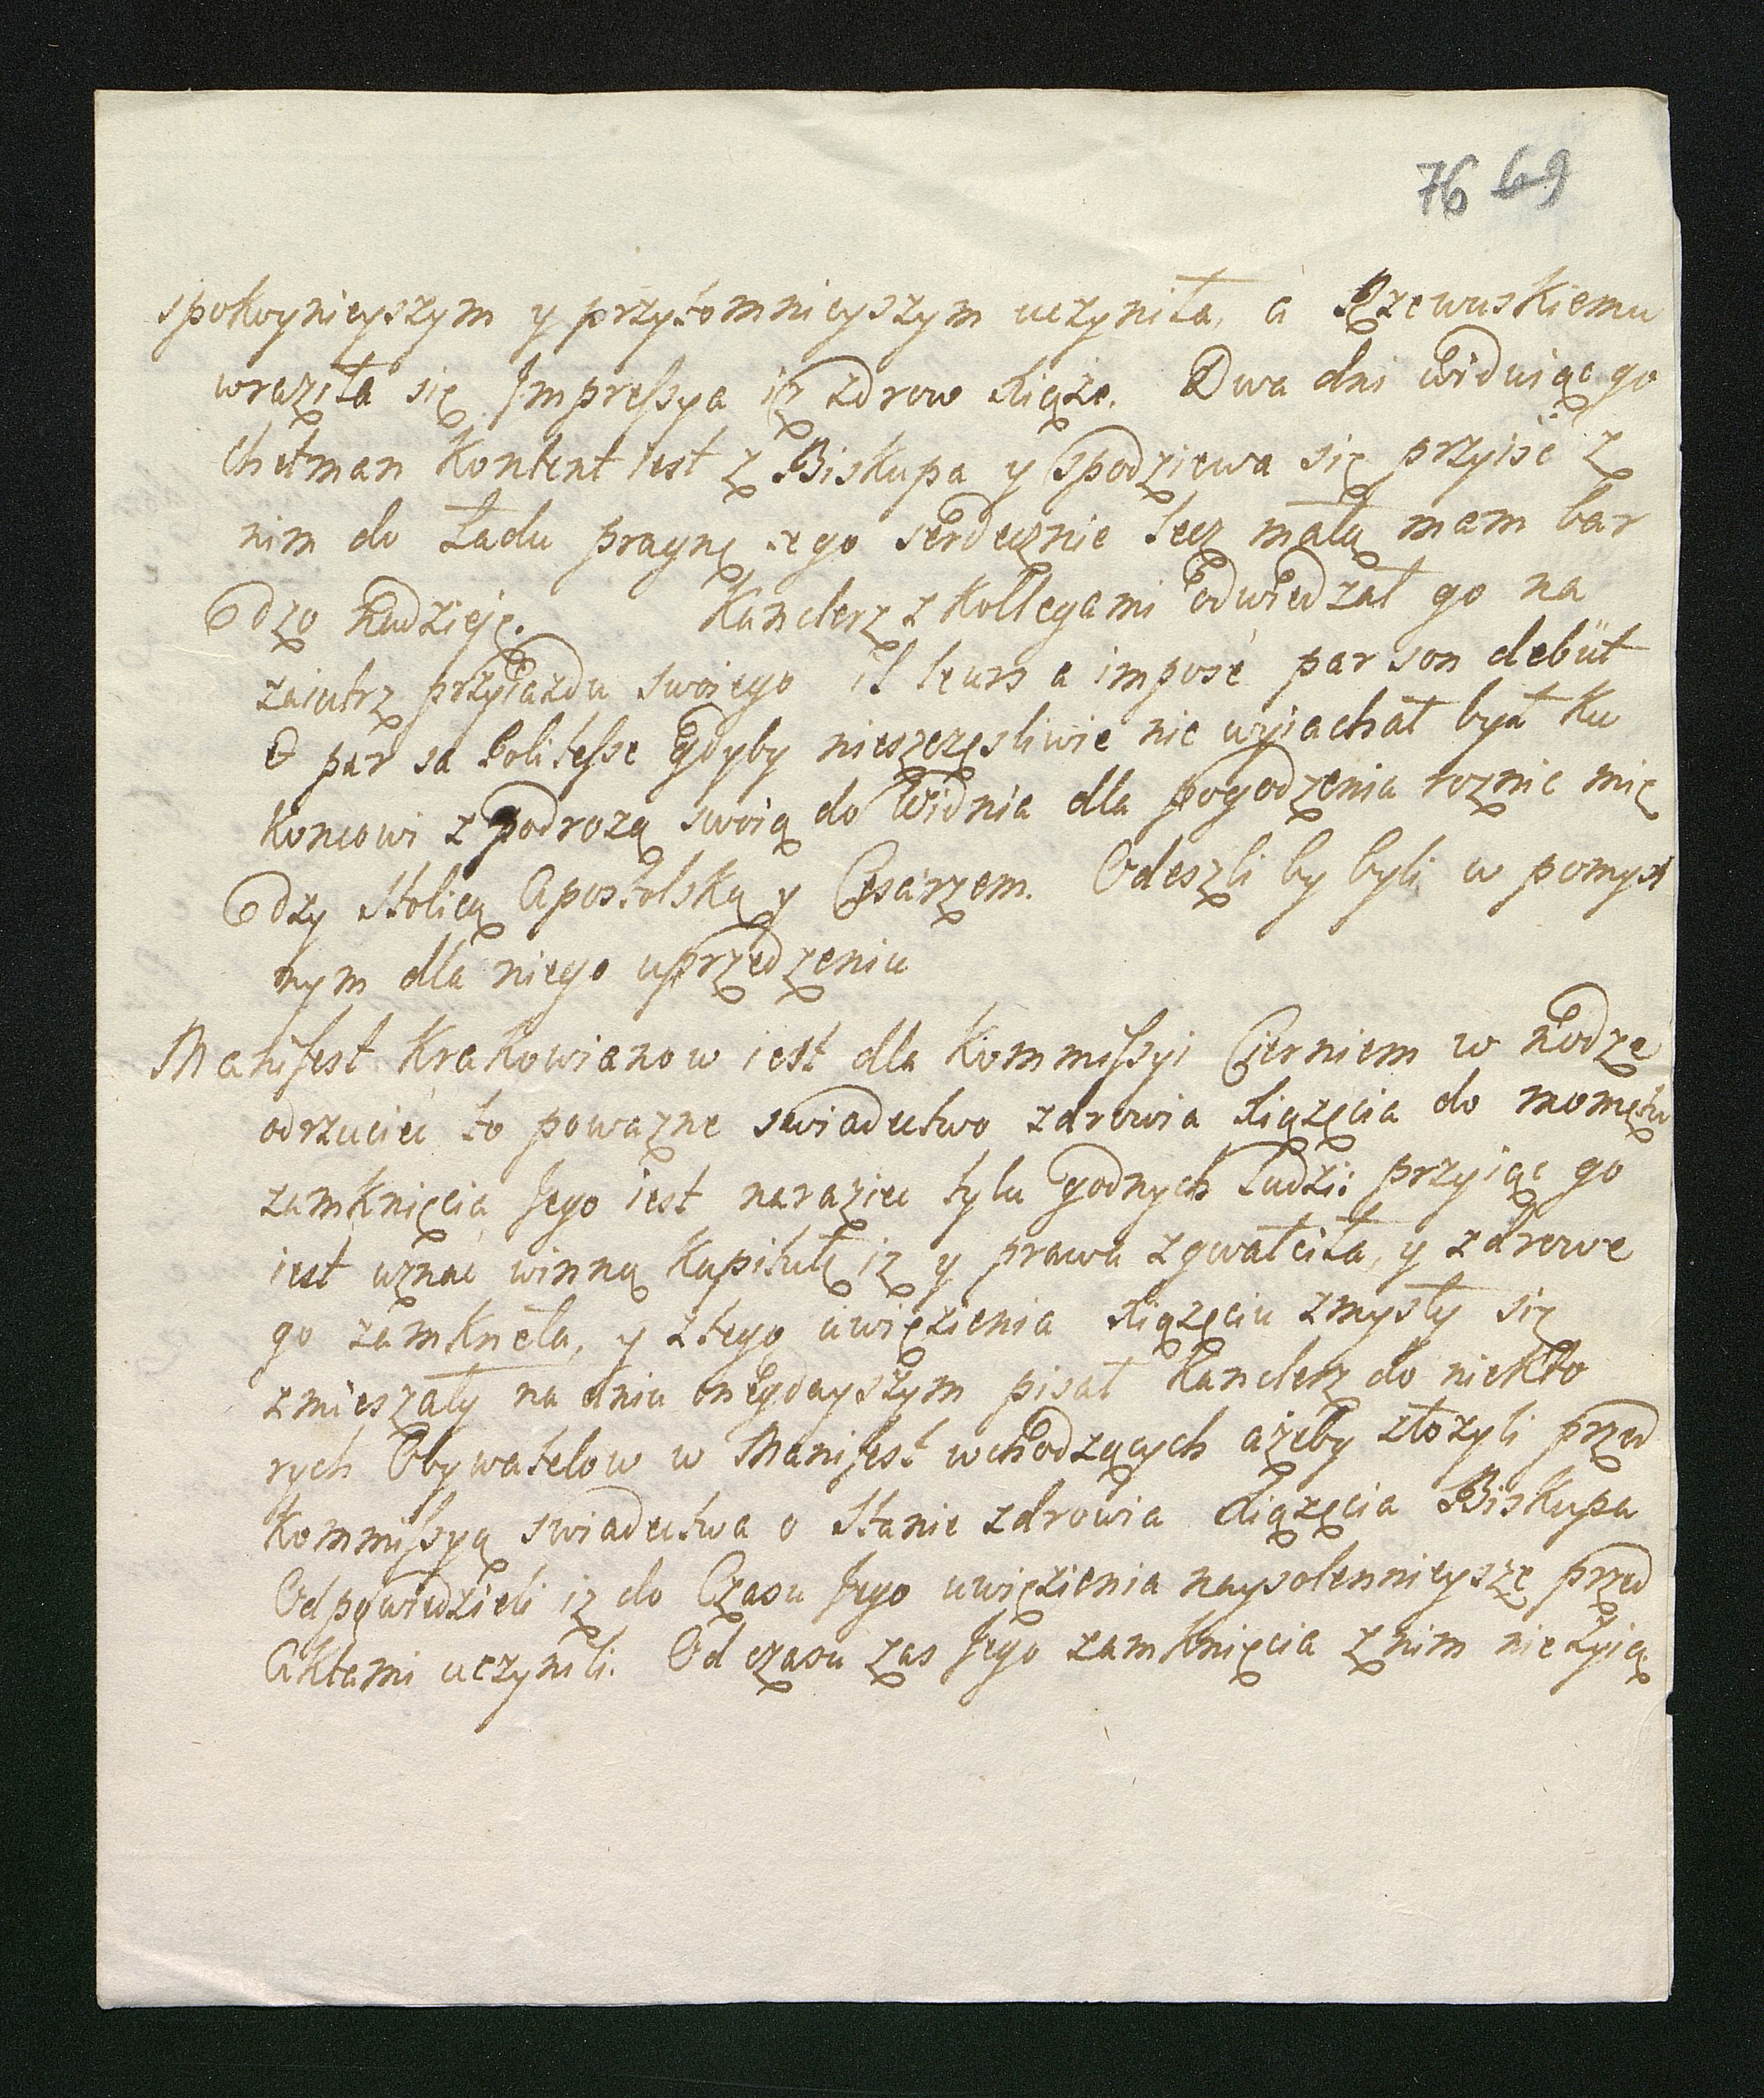 76 69
spokoynieyszym y przytomnieyszym uczyniła, a Rzewuskiemu
wraziła się Impressya iz zdrow Xiąże. Dwa dni widuiąc go
Chetman Kontent iest z Biskupa y spodziewa się przyiść z
nim do Ładu pragnę tego serdecznie lecz małą mam bar
dzo Nadzieję. Kanclerz z Kollegami odwiedzał go na
zaiutrz przyiazdu swoiego il leurs a imposé par son debüt
& par sa Politesse Gdyby nieszczęsliwie nie wyiachał był Ku
Koncowi z podrozą swoią do Widnia dla pogodzenia roznic mię
dzy Stolicą Apostolską y Cesarzem. Odeszli by byli w pomysl
nym dla niego uprzedzeniu
Manifest Krakowianow iest dla Kommissyi Cierniem w Nodze
odrzucieć to powazne swiadectwo zdrowia Xiązęcia do momętu
zamknięcia Jego iest naraziec tylu godnych Ludzi: przyiąc go
iest uznać winną Kapitułę iz y prawa zgwałciła, y zdrowe
go zamkneła, y z tego uwięzienia Xiązęciu zmysły się
zmieszały na dniu onegdayszym pisał Kanclerz do niekto
rych Obywatelow w Manifest wchodzących ażeby złozyli przed
Kommissyą swiadectwa o Stanie zdrowia Xiązęcia Biskupa
Odpowiedzieli iz do Czasu Jego uwięzienia naysolennieysze przed
Aktami uczynili. Od czasu zas Jego zamknięcia z nim nie zyią